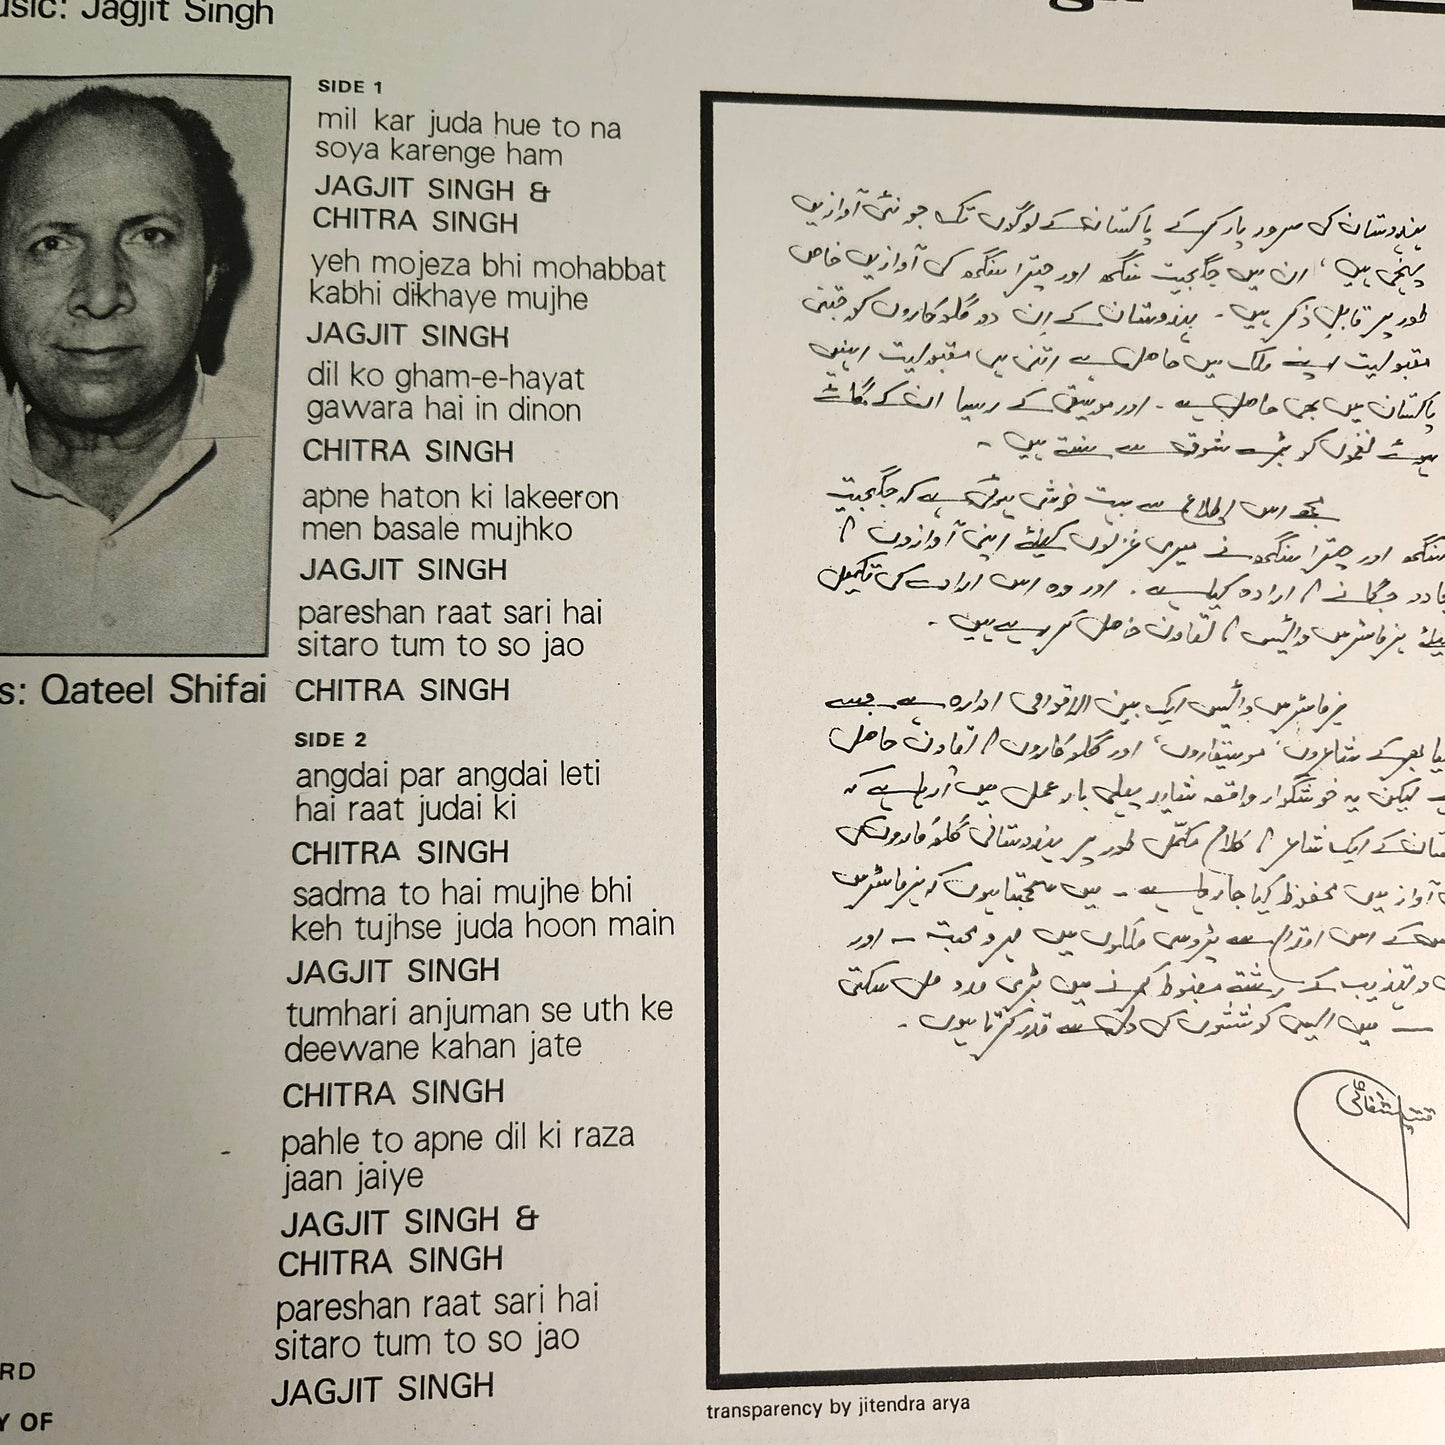 Music: Jagjit Singh
SIDE 1
mil kar juda hue to na
soya karenge ham
JAGJIT SINGH &
CHITRA SINGH
yeh mojeza bhi mohabbat
kabhi dikhaye mujhe
JAGJIT SINGH
dil ko gham-e-hayat
gawara hai in dinon
CHITRA SINGH
apne haton ki lakeeron
men basale mujhko
JAGJIT SINGH
pareshan raat sari hai
sitaro tum to so jao
s: Qateel Shifai
CHITRA SINGH
SIDE 2
angdai par angdai leti
hai raat judai ki
CHITRA SINGH
sadma to hai mujhe bhi
keh tujhse juda hoon main
JAGJIT SINGH
tumhari anjuman se uth ke
deewane kahan jate
CHITRA SINGH
pahle to apne dil ki raza
jaan jaiye
JAGJIT SINGH &
CHITRA SINGH
pareshan raat sari hai
sitaro tum to so jao
JAGJIT SINGH
RD
Y OF
ہندوستان کی سرحد پار کر کے پاکستان کے لوگوں تک جو نئی آوازیں
پہنچی ہیں، ان میں جگجیت سنگھ اور چترا سنگھ کی آوازیں خاص
طور پر قابلِ ذکر ہیں۔ ہندوستان کے اِن دو گلوکاروں کو جتنی
مقبولیت اپنے ملک میں حاصل ہے اتنی ہی مقبولیت انہیں
پاکستان میں بھی حاصل ہے۔ اور موسیقی کے رسیا ان کے گائے
ہوئے نغموں کو بڑے شوق سے سنتے ہیں۔
مجھے اس اطلاع سے بہت خوشی ہوئی ہے کہ جگجیت
سنگھ اور چترا سنگھ نے میری غزلوں کیلئے اپنی آوازوں کا
جادو جگانے کا ارادہ کیا ہے۔ اور وہ اس ارادے کی تکمیل
کیلئے ہزماسٹرس وائیس کا تعاون حاصل کر رہے ہیں۔
ہزماسٹرس وائیس ایک بین الاقوامی ادارہ ہے جسے
بھر کے شاعروں، موسیقاروں، اور گلوکاروں کا تعاون حاصل
لیکن یہ خوشگوار واقعہ شاید پہلی بار عمل میں آ رہا ہے کہ
کے ایک شاعر کا کلام مکمّل طور پر ہندوستانی گلوکاروں کی
آواز میں محفوظ کیا جا رہا ہے۔ میں سمجھتا ہوں کہ ہزماسٹرس
کے اس اقدام سے پڑوسی ملکوں میں مہر و محبت ۔ اور
و تہذیب کے رشتے مضبوط کرنے میں بڑی مدد مل سکتی
میں ایسی کوششوں کی دل سے قدر کرتا ہوں۔
قتیل شفائی
transparency by jitendra arya